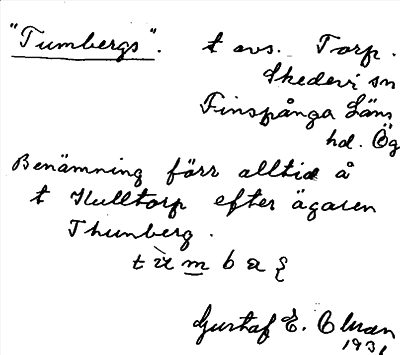 "Tumbergs". t avs. Torp.
Skedevi sn
Finspånga Läns
hd. Ög
Benämning förr alltid å
t Kulltorp efter ägaren
Thunberg.
Gustaf E.
1931